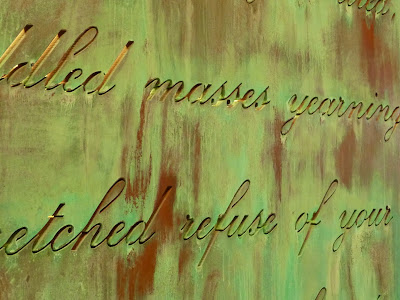 ddled masses yearning
etched refuse of your